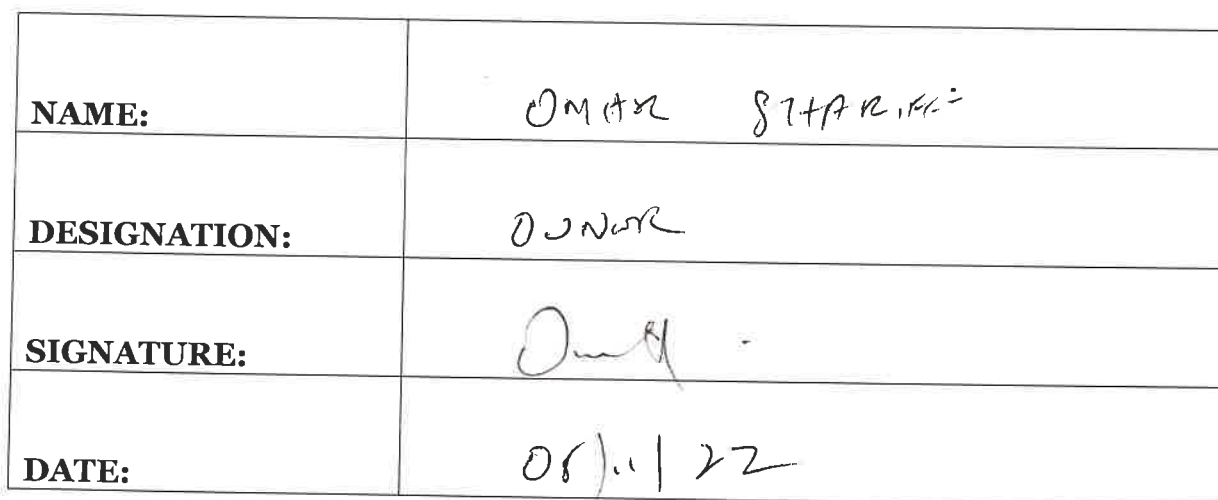 NAME: OMAR SHARIFF
DESIGNATION: OWNER
SIGNATURE:
DATE: